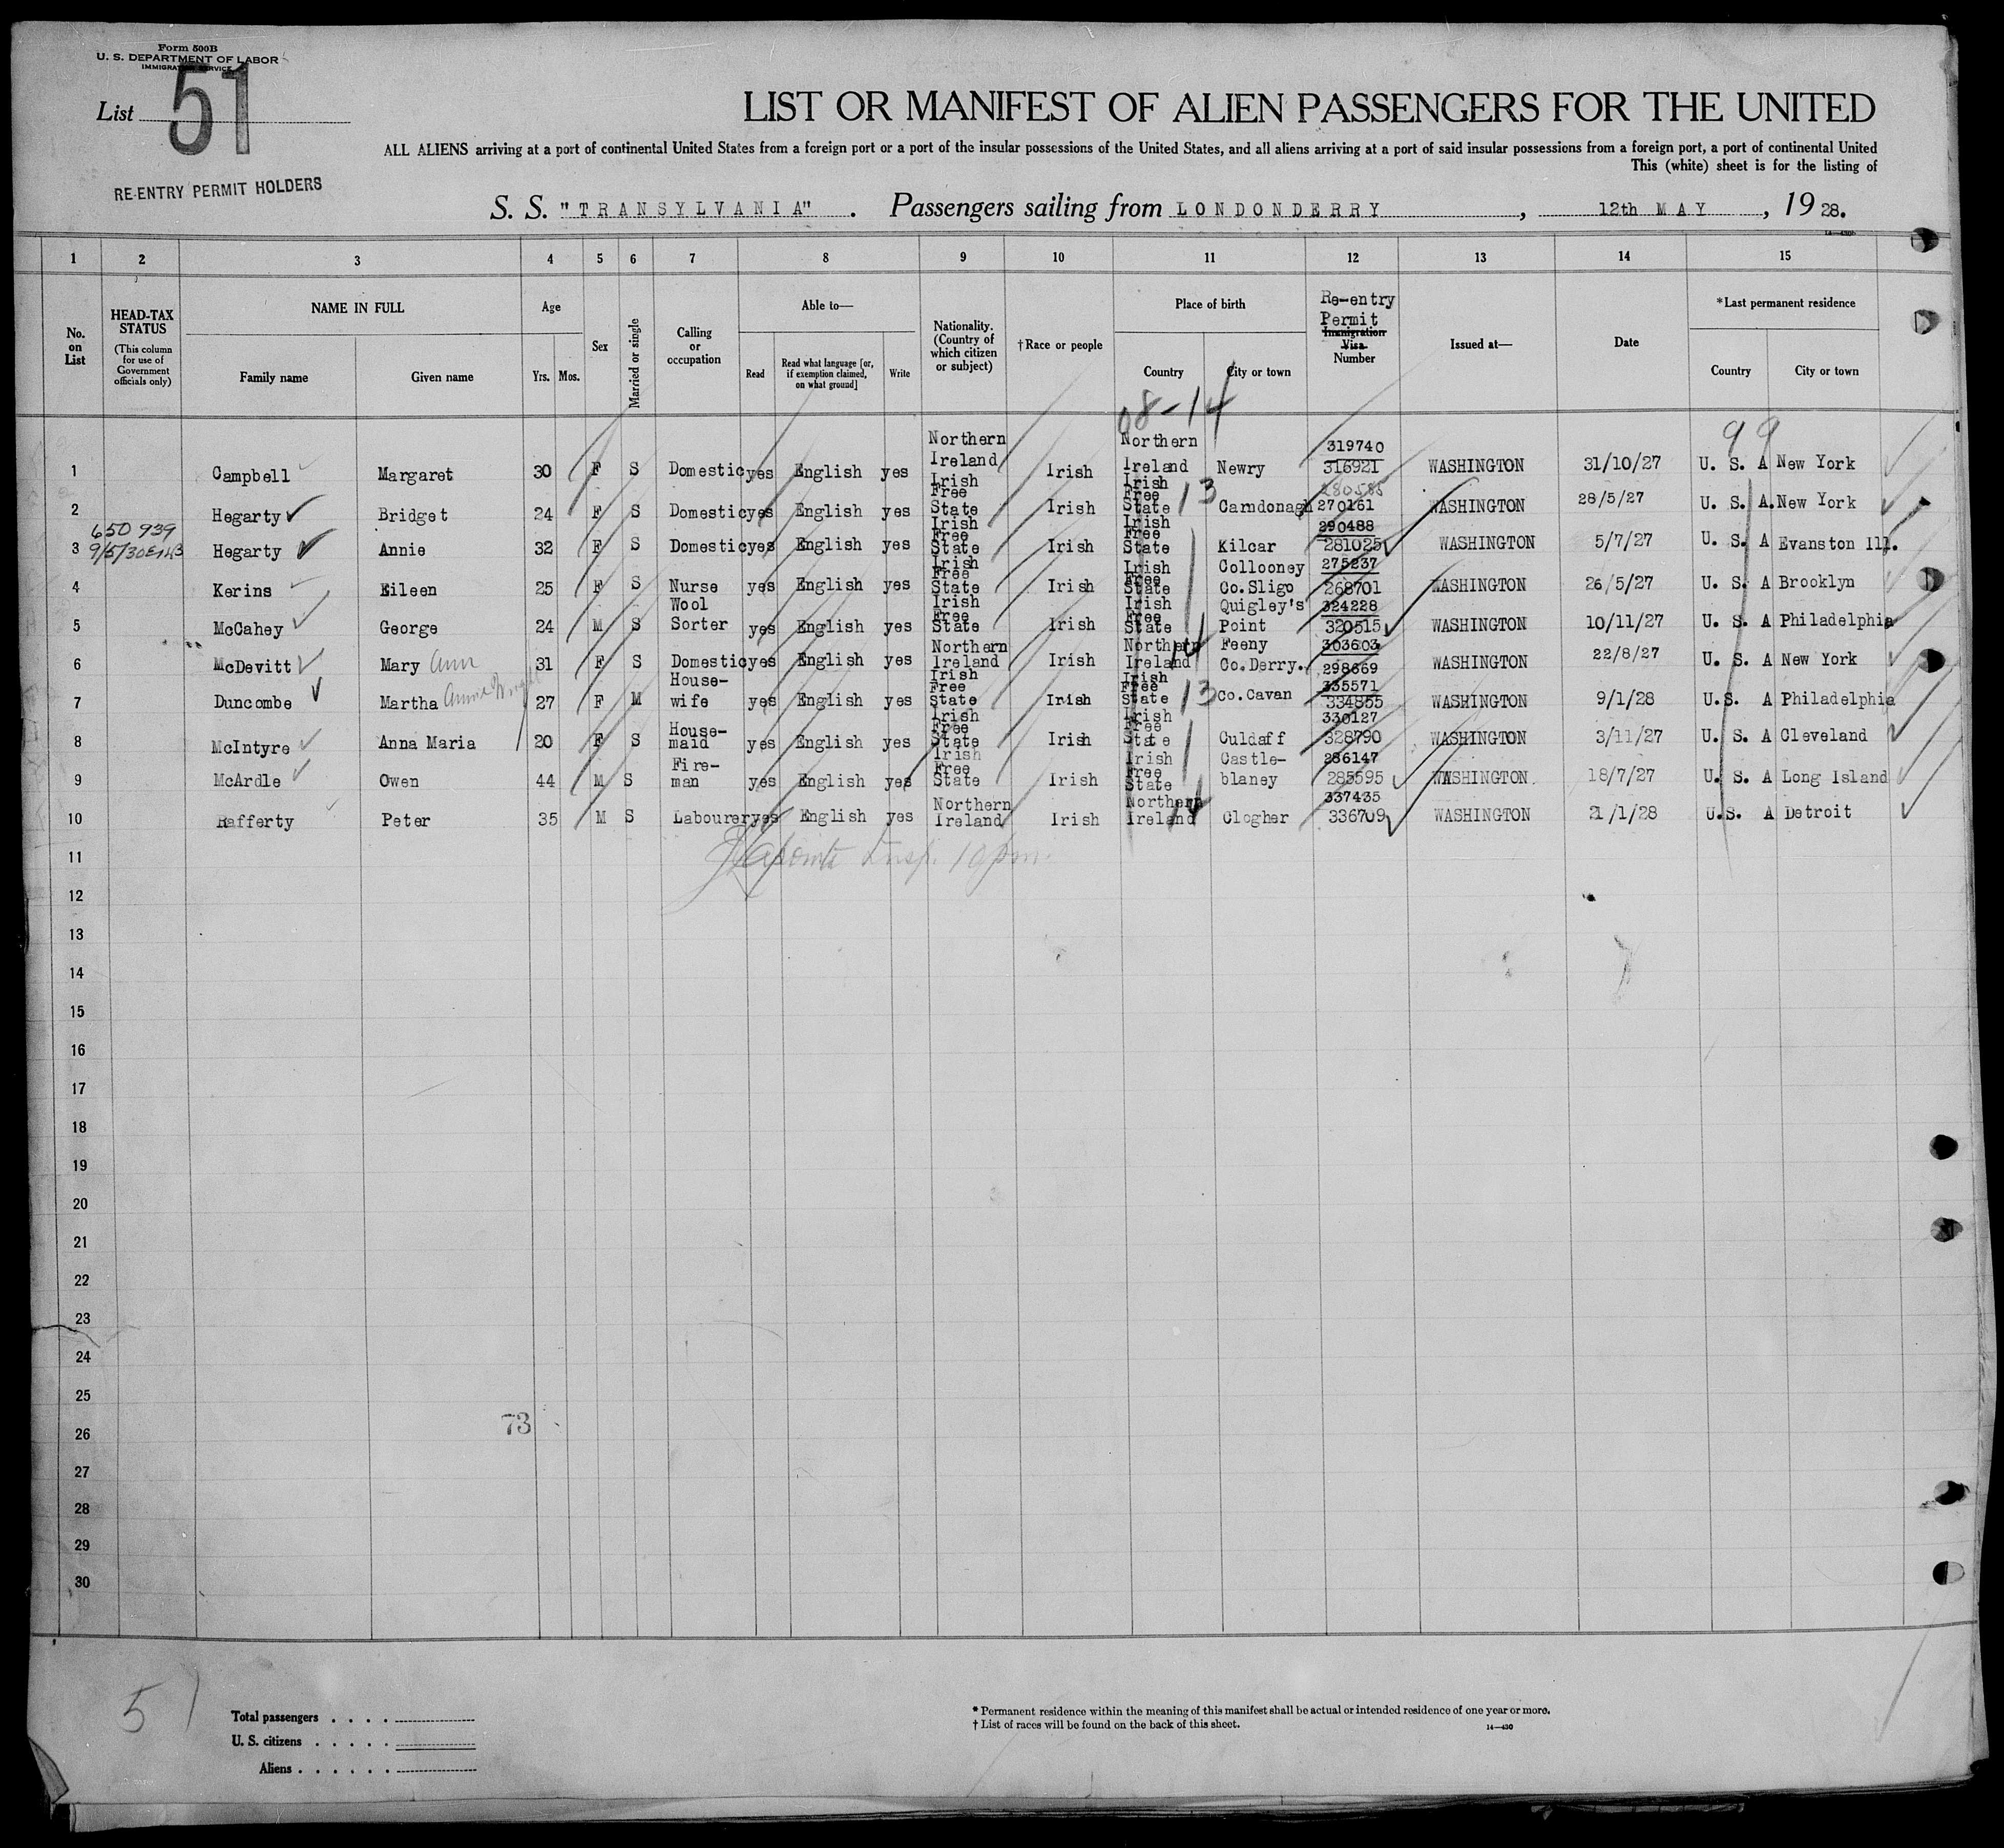 Form 500B
U. S. DEPARTMENT OF LABOR
IMMIGRATION SERVICE
List 51
RE-ENTRY PERMIT HOLDERS
LIST OR MANIFEST OF ALIEN PASSENGERS FOR THE UNITED
ALL ALIENS arriving at a port of continental United States from a foreign port or a port of the insular possessions of the United States, and all aliens arriving at a port of said insular possessions from a foreign port, a port of continental United
This (white) sheet is for the listing of
S. S. "TRANSYLVANIA". Passengers sailing from LONDONDERRY, 12th MAY, 1928.
14—430b
1 2 3 4 5 6 7 8 9 10 11 12 13 14 15
No. on List
HEAD-TAX STATUS (This column for use of Government officials only)
NAME IN FULL
Family name Given name
Age
Yrs. Mos.
Sex
Married or single
Calling or occupation
Able to—
Read Read what language [or, if exemption claimed, on what ground] Write
Nationality. (Country of which citizen or subject)
†Race or people
Place of birth
Country City or town
Re-entry Permit Immigration Visa Number
Issued at—
Date
*Last permanent residence
Country City or town
08-14
99
1 Campbell Margaret 30 F S Domestic yes English yes Northern Ireland Irish Northern Ireland Newry 319740 316921 WASHINGTON 31/10/27 U. S. A New York
2 Hegarty Bridget 24 F S Domestic yes English yes Irish Free State Irish Irish Free State 13 Carndonagh 280585 270161 WASHINGTON 28/5/27 U. S. A. New York
650 939
3 Hegarty Annie 32 F S Domestic yes English yes Irish Free State Irish Irish Free State Kilcar 290488 281025 WASHINGTON 5/7/27 U. S. A Evanston Ill.
4 Kerins Eileen 25 F S Nurse yes English yes Irish Free State Irish Irish Free State Collooney Co.Sligo 275237 268701 WASHINGTON 26/5/27 U. S. A Brooklyn
5 McCahey George 24 M S Wool Sorter yes English yes Irish Free State Irish Irish Free State Quigley's Point 324228 320515 WASHINGTON 10/11/27 U. S. A Philadelphia
6 McDevitt Mary Ann 31 F S Domestic yes English yes Northern Ireland Irish Northern Ireland 14 Feeny Co.Derry. 303603 298669 WASHINGTON 22/8/27 U. S. A New York
7 Duncombe Martha Annie 27 F M House-wife yes English yes Irish Free State Irish Irish Free State 13 Co.Cavan 335571 334855 WASHINGTON 9/1/28 U.S. A Philadelphia
8 McIntyre Anna Maria 20 F S House-maid yes English yes Irish Free State Irish Irish Free State Culdaff 330127 328790 WASHINGTON 3/11/27 U. S. A Cleveland
9 McArdle Owen 44 M S Fire-man yes English yes Irish Free State Irish Irish Free State Castle-blaney 286147 285595 WASHINGTON. 18/7/27 U. S. A Long Island
10 Rafferty Peter 35 M S Labourer yes English yes Northern Ireland Irish Northern Ireland 14 Clogher 337435 336709 WASHINGTON 21/1/28 U.S. A Detroit
11
12
13
14
15
16
17
18
19
20
21
22
23
24
25
26 73
27
28
29
30
51
Total passengers
U. S. citizens
Aliens
* Permanent residence within the meaning of this manifest shall be actual or intended residence of one year or more.
† List of races will be found on the back of this sheet.
14—430